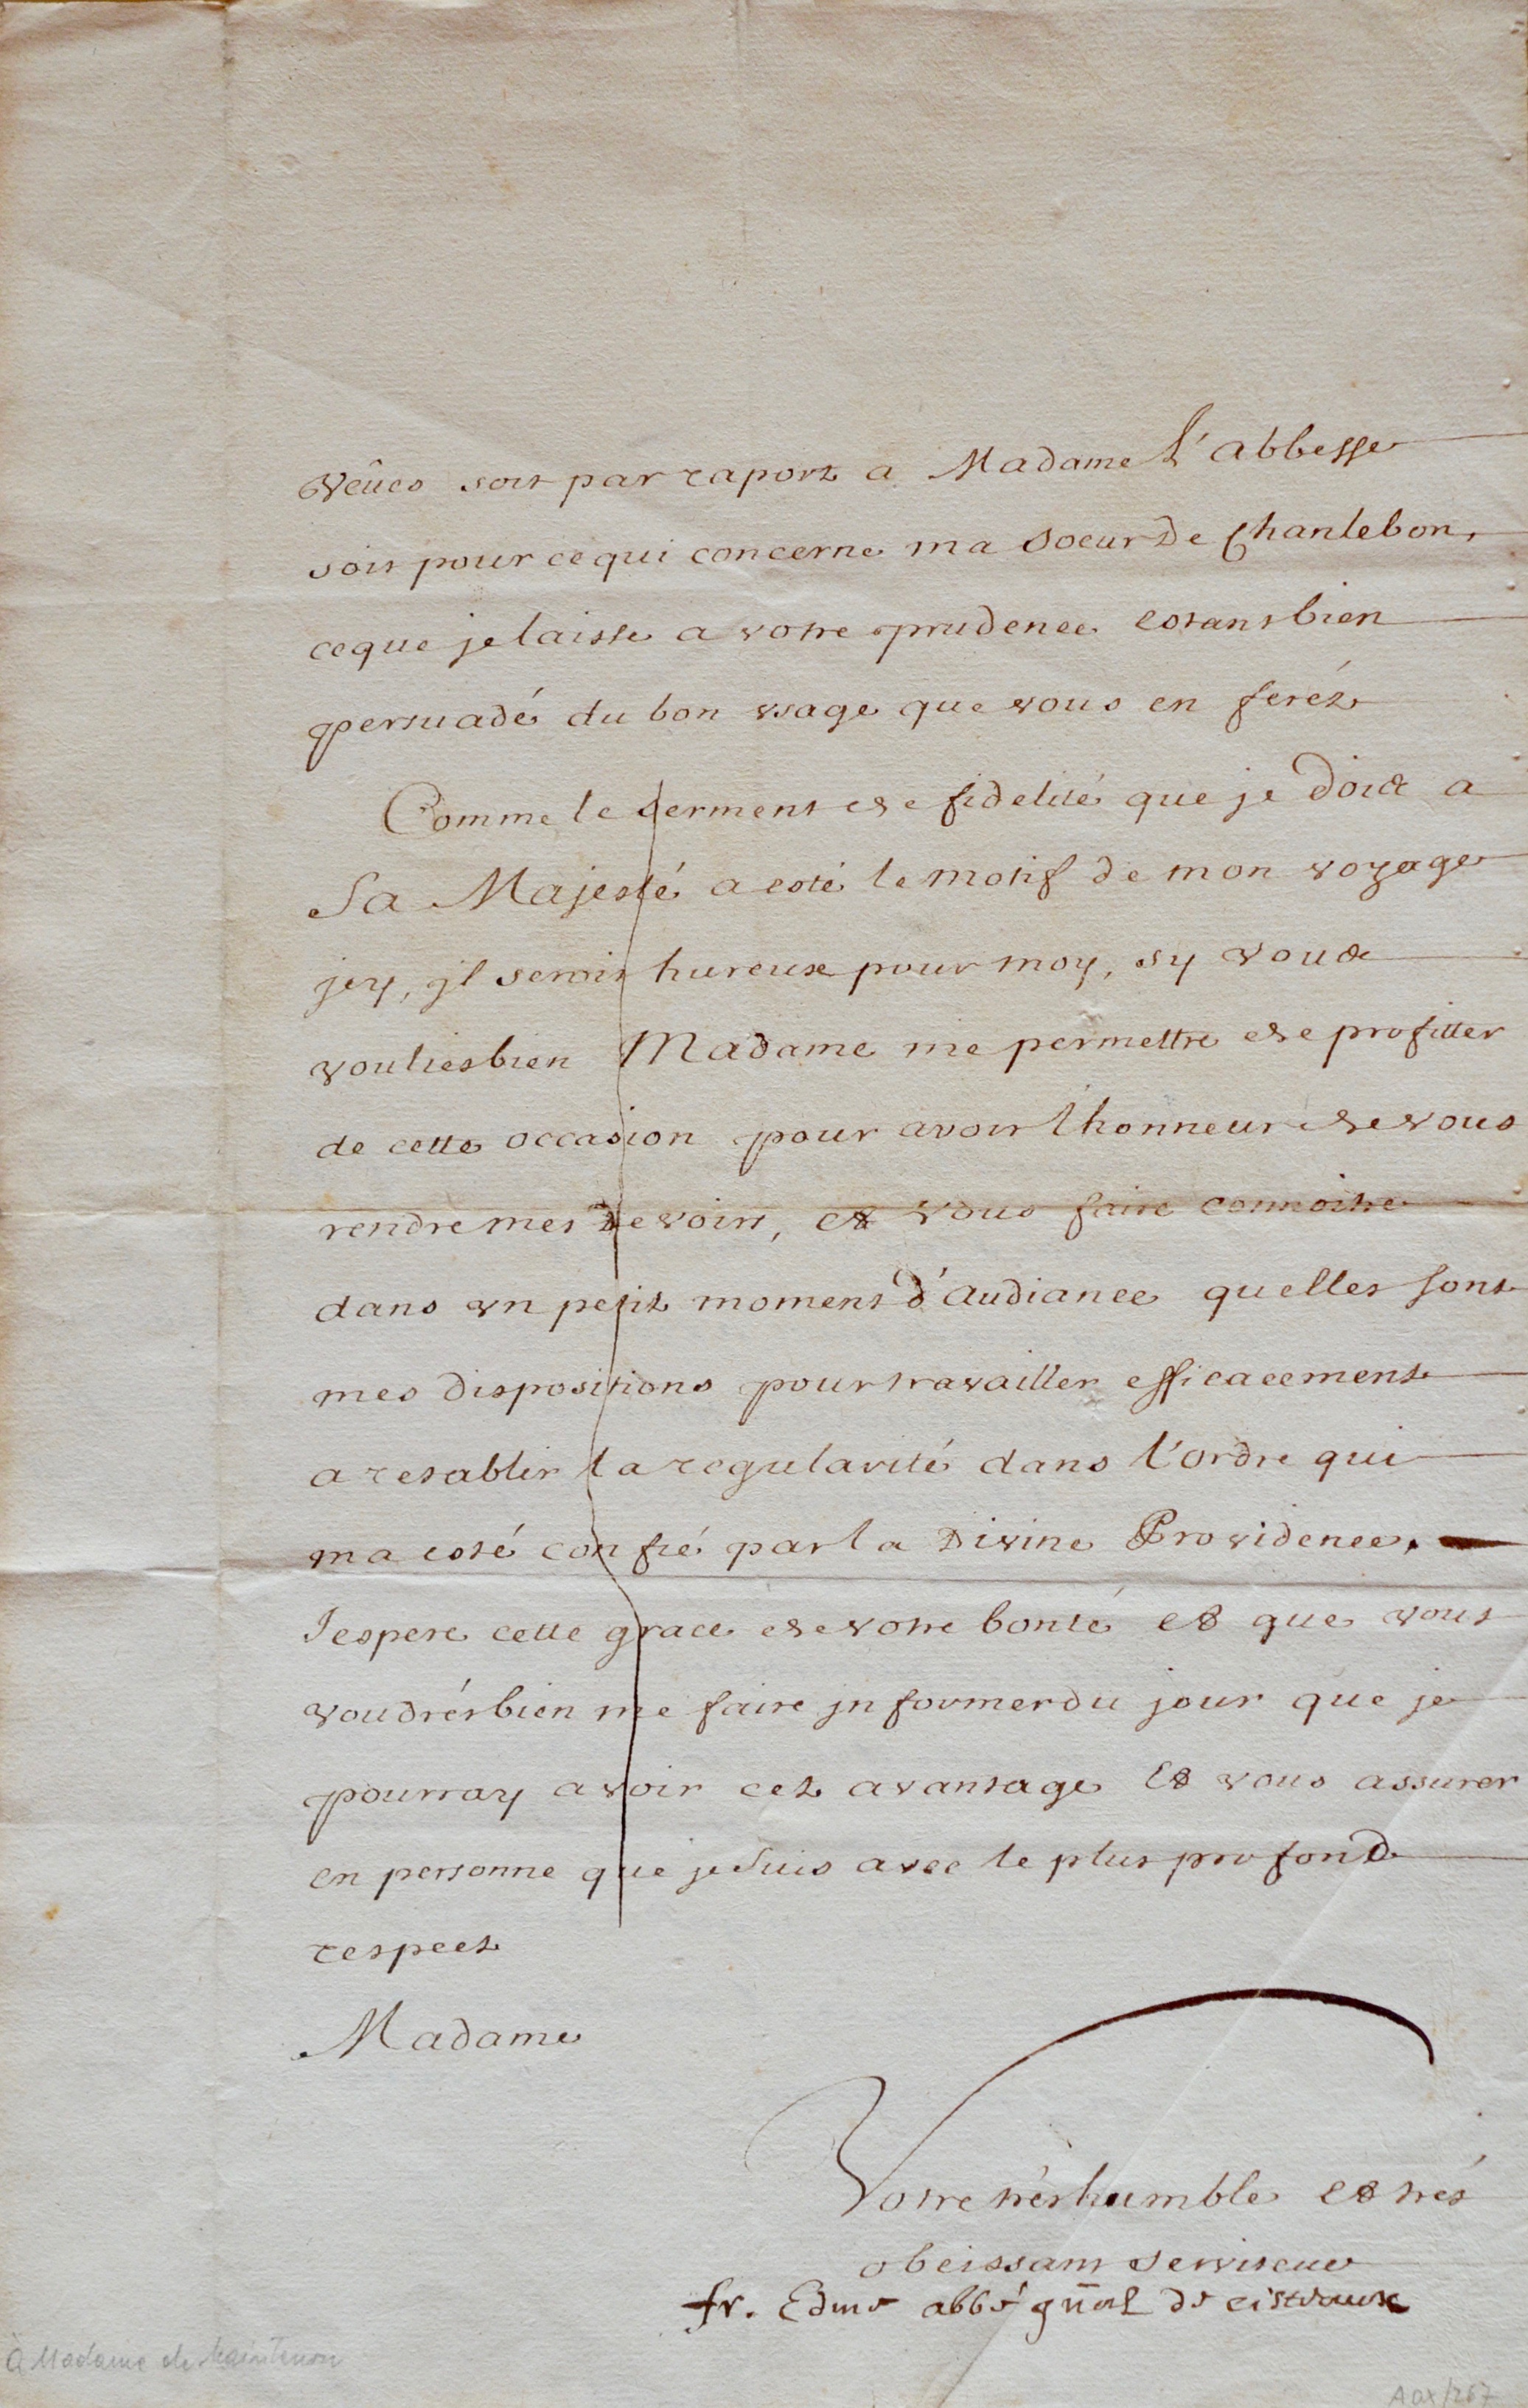 vêues soit par raport a Madame l'abbesse
soit pour ce qui concerne ma soeur de Chantebon,
ce que je laisse a votre prudence estant bien
persuadé du bon vsage que vous en feréz
Comme le serment de fidelité que je dois a
Sa Majesté a esté le motif de mon voyage
jcy, jl seroit hureux pour moy, sy vous
voulies bien Madame me permettre de profitter
de cette occasion pour avoir l'honneur de vous
rendre mes devoirs, et vous faire connoitre
dans vn petit moment d'audiance quelles sont
mes dispositions pour travailler efficacement
a retablir la regularité dans l'ordre qui
ma esté confié par la Divine Providence.
Jespere cette grace de votre bonté et que vous
voudrés bien me faire jnformer du jour que je
pourray avoir cet avantage et vous assurer
en personne que je suis avec le plus profond
respect
Madame
Votre trés humble et trés
obeissant serviteur
fr. Edme abbé gñal de cisteaux
à Madame de Maintenon